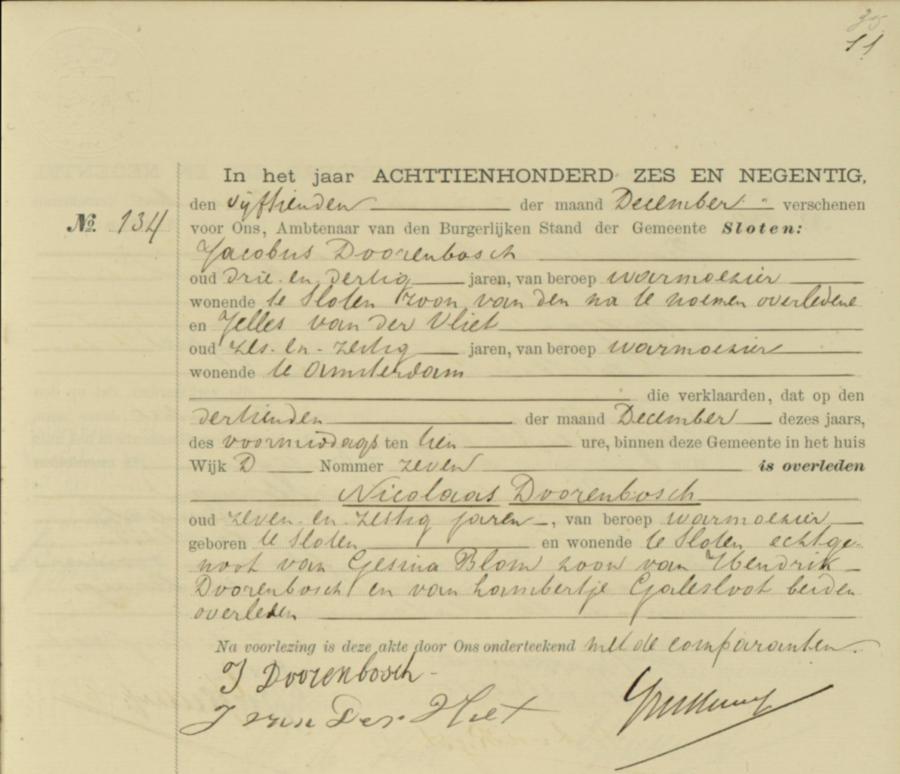 35
11
In het jaar ACHTTIENHONDERD ZES EN NEGENTIG,
den vijftienden der maand December verschenen
№. 134
voor Ons, Ambtenaar van den Burgerlijken Stand der Gemeente Sloten:
Jacobus Doorenbosch
oud drie en dertig jaren, van beroep warmoezier
wonende te Sloten zoon van den na te noemen overledene
en Jelles van der Vliet
oud zes-en-zestig jaren, van beroep warmoezier
wonende te Amsterdam
die verklaarden, dat op den
dertienden der maand December dezes jaars,
des voormiddags ten tien ure, binnen deze Gemeente in het huis
Wijk D Nommer zeven is overleden
Nicolaas Doorenbosch
oud zeven-en-zestig jaren, van beroep warmoezier
geboren te Sloten en wonende te Sloten echtge-
noot van Gesina Blom zoon van Hendrik
Doorenbosch en van Lambertje Galesloot beiden
overleden
Na voorlezing is deze akte door Ons onderteekend met de comparanten.
J Doorenbosch
J van Der